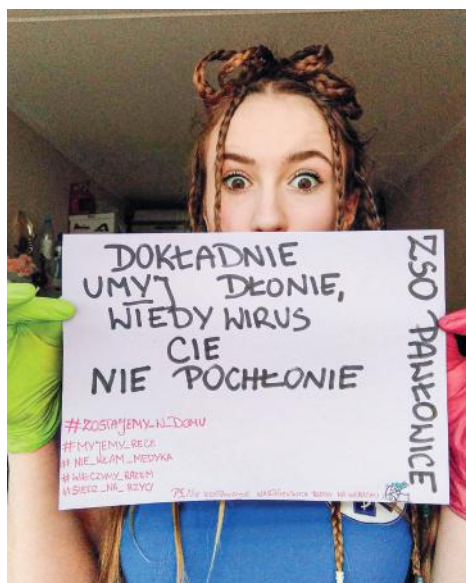 DOKŁADNIE
UMYJ DŁONIE,
WTEDY WIRUS
CIE
NIE POCHŁONIE
ZSO PAWŁOWICE
#ZOSTAJEMY_W_DOMU
#MYJEMY_RĘCE
#NIE_KŁAM_MEDYKA
#WALCZYMY_RAZEM
#SIEDZ_NA_RZYCI
PS. NIE